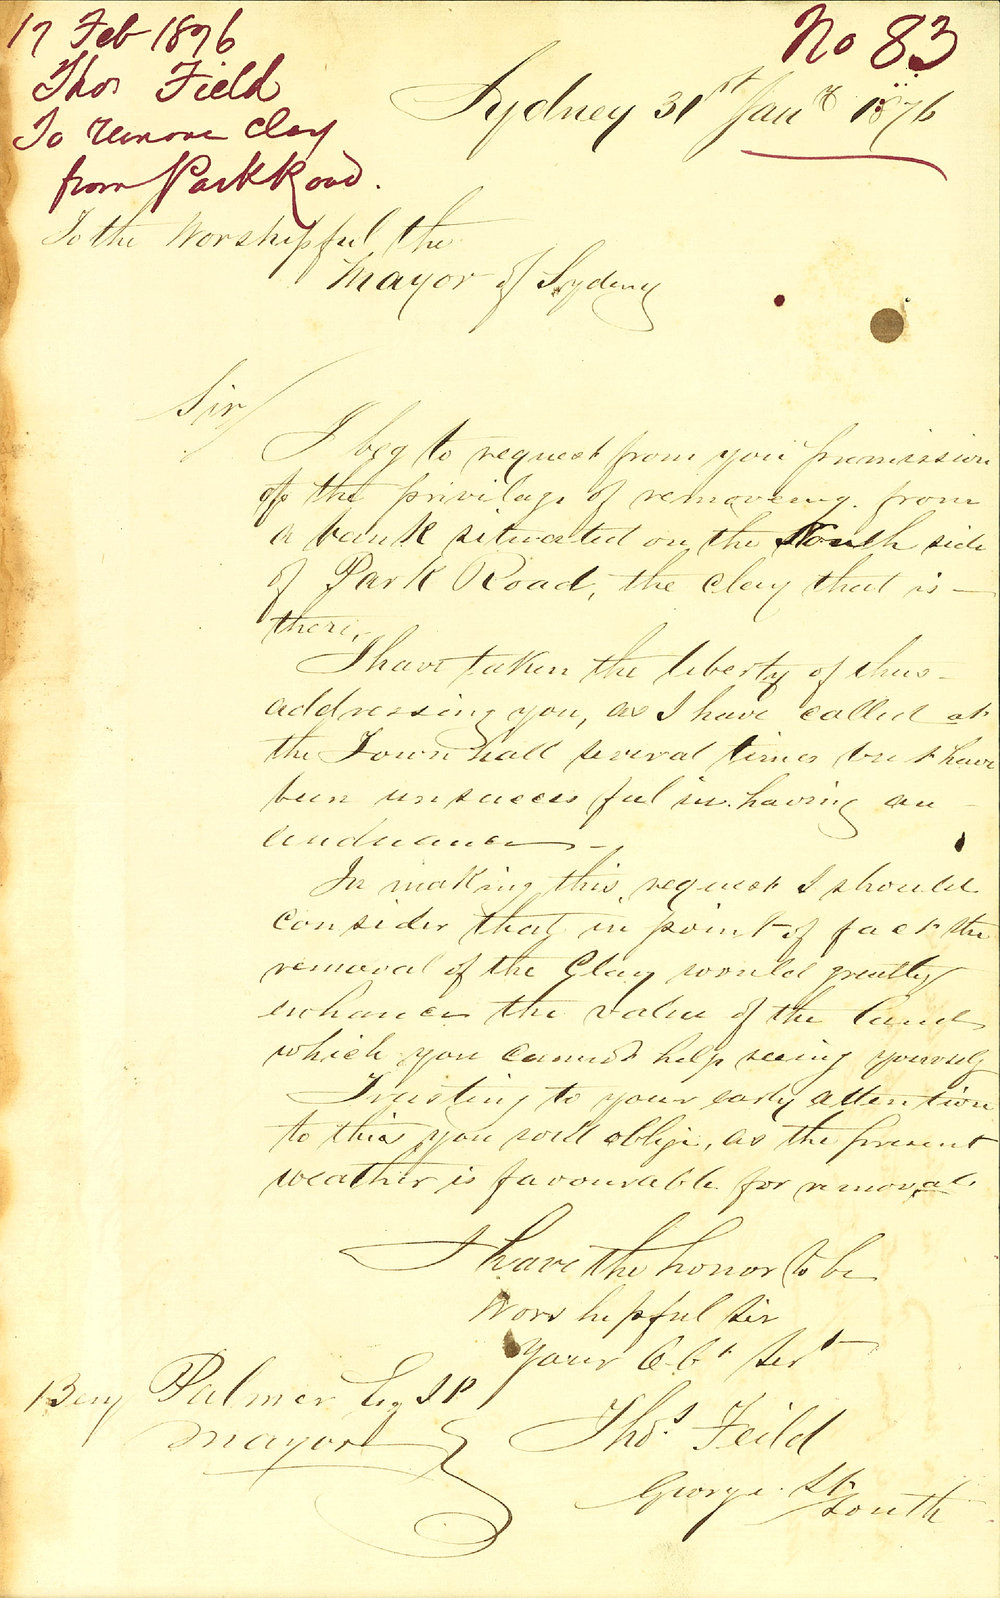 17 Feb 1876
Thos Field
To remove clay
from Park Road.
No 83
Sydney 31st Jany 1876
To the Worshipful the
Mayor of Sydney
Sir/
I beg to request from you premission
of the privilage of removeing from
a bank situated on the South side
of Park Road, the Clay that is
there,
I have taken the liberty of thus
addressing you, as I have called at
the Town hall several times but have
been unsuccessful in having an
audiuance
In making this request I should
consider that in point of fact the
removal of the Clay would greatly
enhance the value of the land
which you cannot help seeing yourself
Trusting to your early attention
to this you will oblije, as the present
weather is favourable for removal
I have the honor to be
Worshipful sir
Your Obt Sert
Benj Palmer Esq J P
Mayor
Thos Feild
George St
South